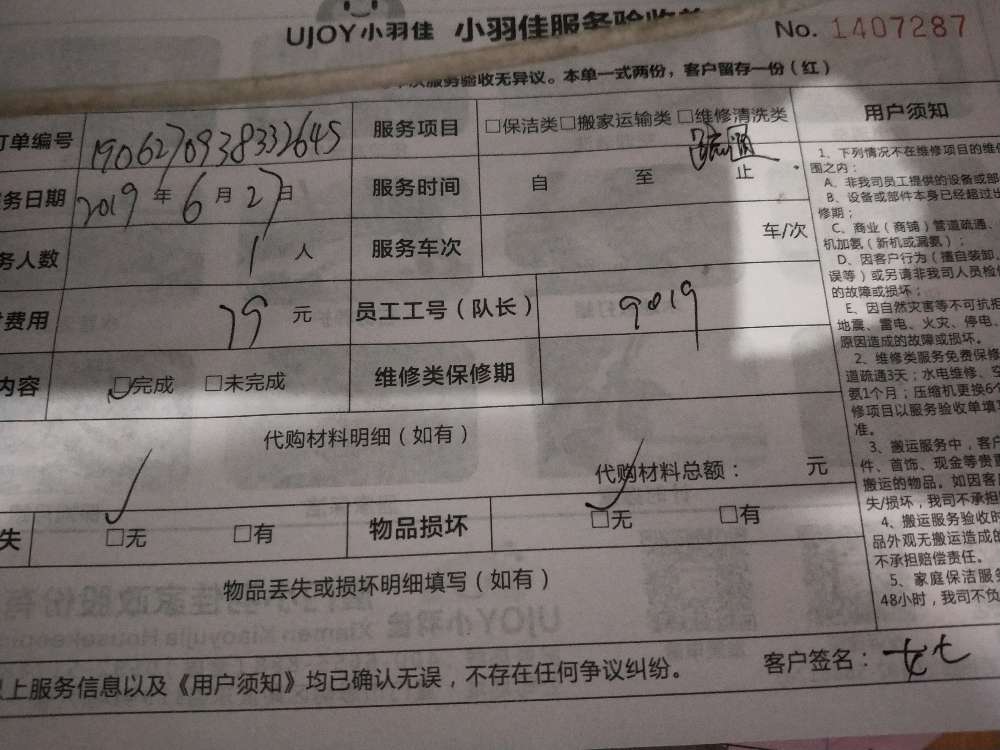 UJOY小羽佳 小羽佳服务验收
No. 1407287
服务验收无异议。本单一式两份，客户留存一份（红）
订单编号 1906270938332645 服务项目 □保洁类□搬家运输类 □维修清洗类
疏通
务日期 2019 年 6 月 27 日 服务时间 自 至 止
务人数 1 人 服务车次 车/次
费用 79 元 员工工号（队长） 9019
内容 □完成 □未完成 维修类保修期
代购材料明细（如有）
代购材料总额： 元
失 □无 □有 物品损坏 □无 □有
物品丢失或损坏明细填写（如有）
上服务信息以及《用户须知》均已确认无误，不存在任何争议纠纷。
客户签名：
用户须知
1、下列情况不在维修项目的维
围之内：
A、非我司员工提供的设备或部
B、设备或部件本身已经超过出
修期；
C、商业（商铺）管道疏通、
机加氨（新机或漏氨）；
D、因客户行为（擅自装卸、
误等）或另请非我司人员检
的故障或损坏；
E、因自然灾害等不可抗拒
地震、雷电、火灾、停电、
原因造成的故障或损坏。
2、维修类服务免费保修
道疏通3天；水电维修、空
氨1个月；压缩机更换6个
修项目以服务验收单填写
准。
3、搬运服务中，客户
件、首饰、现金等贵重
搬运的物品。如因客户
失/损坏，我司不承担
4、搬运服务验收时
品外观无搬运造成的
不承担赔偿责任。
5、家庭保洁服务
48小时，我司不负